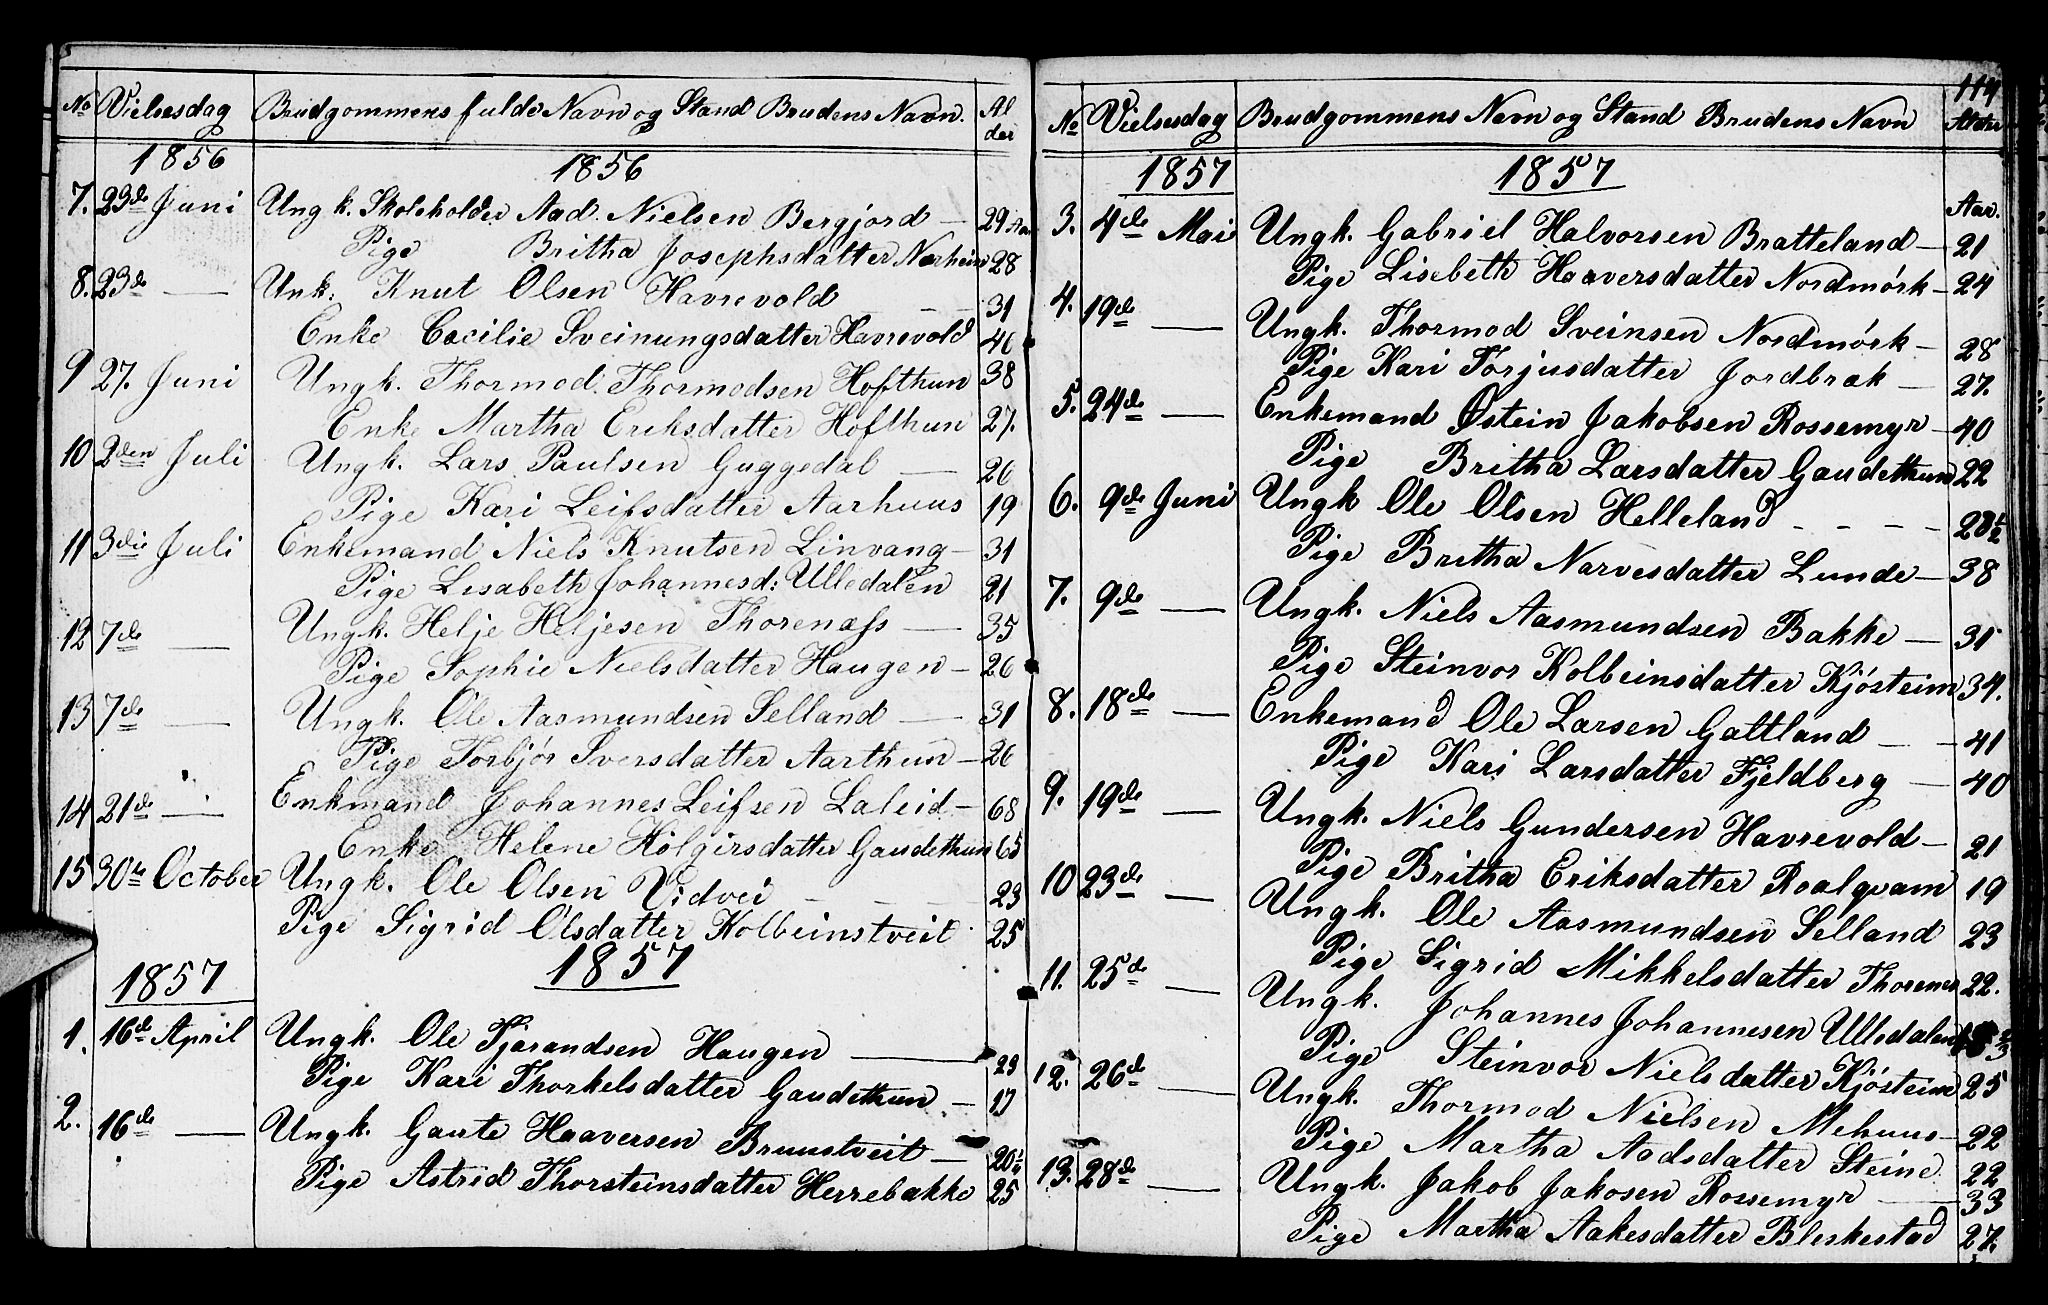 No Vielsesdag Brudgommens fulde Navn og Stand Brudens Navn. Al der
1856 1856
7. 23de Juni Ungk. Skoleholder Aad. Nielsen Bergjord — 29 Aar
Pige Britha Josephsdatter Nærheim 28
8. 23de — Unk. Knut Olsen Havrevold — 31
Enke Cecilie Sveinungsdatter Havrevold 46
9 27. Juni Ungk. Thormod Thormodsen Hofthun 38
Enke Martha Eriksdatter Hofthun 27.
10 2den Juli Ungk. Lars Paulsen Guggedal — 26
Pige Kari Leifsdatter Aarhuus 19
11 3die Juli Enkemand Niels Knutsen Linvang — 31
Pige Lisabeth Johannesd: Ulledalen 21
12 7de — Ungk. Helje Heljesen Thorenæss — 35
Pige Sophie Nielsdatter Haugen — 26
13 7de — Ungk. Ole Aasmundsen Selland — 31
Pige Torbjør Sversdatter Aarthun — 26
14 21de — Enkmand Johannes Leifsen Laleid — 68
Enke Helene Holgirsdatter Gaudethun 65
15 30te October Ungk. Ole Olsen Vidvei - - - 23
Pige Sigrid Olsdatter Kolbeinstveit 25
1857 1857
1. 16de April Ungk. Ole Tjerandsen Haugen — 23
Pige Kari Thorkelsdatter Gaudethun — 17
2. 16de — Ungk. Gaute Haaversen Bruunstveit — 20½
Pige Astrid Thorsteinsdatter Herrebakke 25
114
No Vielsesdag Brudgommens Navn og Stand Brudens Navn Alder
1857 1857
Aar.
3. 4de Mai Ungk. Gabriel Halvorsen Bratteland — 21
Pige Lisebeth Haaversdatter Nordmørk — 24
4. 19de — Ungk. Thormod Sveinsen Nordmørk — 28
Pige Kari Torjusdatter Jordbrak — 27.
5. 24de — Enkemand Østein Jakobsen Rossemyr — 40
Pige Britha Larsdatter Gaudethun 22
6. 9de Juni Ungk Ole Olsen Helleland - - - - 23½
Pige Britha Narvesdatter Lunde — 38
7. 9de — Ungk. Niels Aasmundsen Bakke — 31
Pige Steinvor Kolbeinsdatter Kjósteim 34.
8. 18de — Enkemand Ole Larsen Gattland — 41
Pige Kari Larsdatter Fjeldberg — 40
9. 19de — Ungk. Niels Gundersen Havrevold — 21
Pige Britha Eriksdatter Roalqvam 19
10 23de — Ungk. Ole Aasmundsen Selland 23
Pige Sigrid Mikkelsdatter Thorenes 22.
11. 25de — Ungk. Johannes Johannesen Ulledalen
Pige Steinvor Nielsdatter Kjósteim 25
12. 26de — Ungk. Thormod Nielsen Mehuus — 22
Pige Martha Aadsdatter Steine 22
13. 28de — Ungk. Jakob Jakosen Rossemyr — 33
Pige Martha Aakesdatter Bleskestad 27.